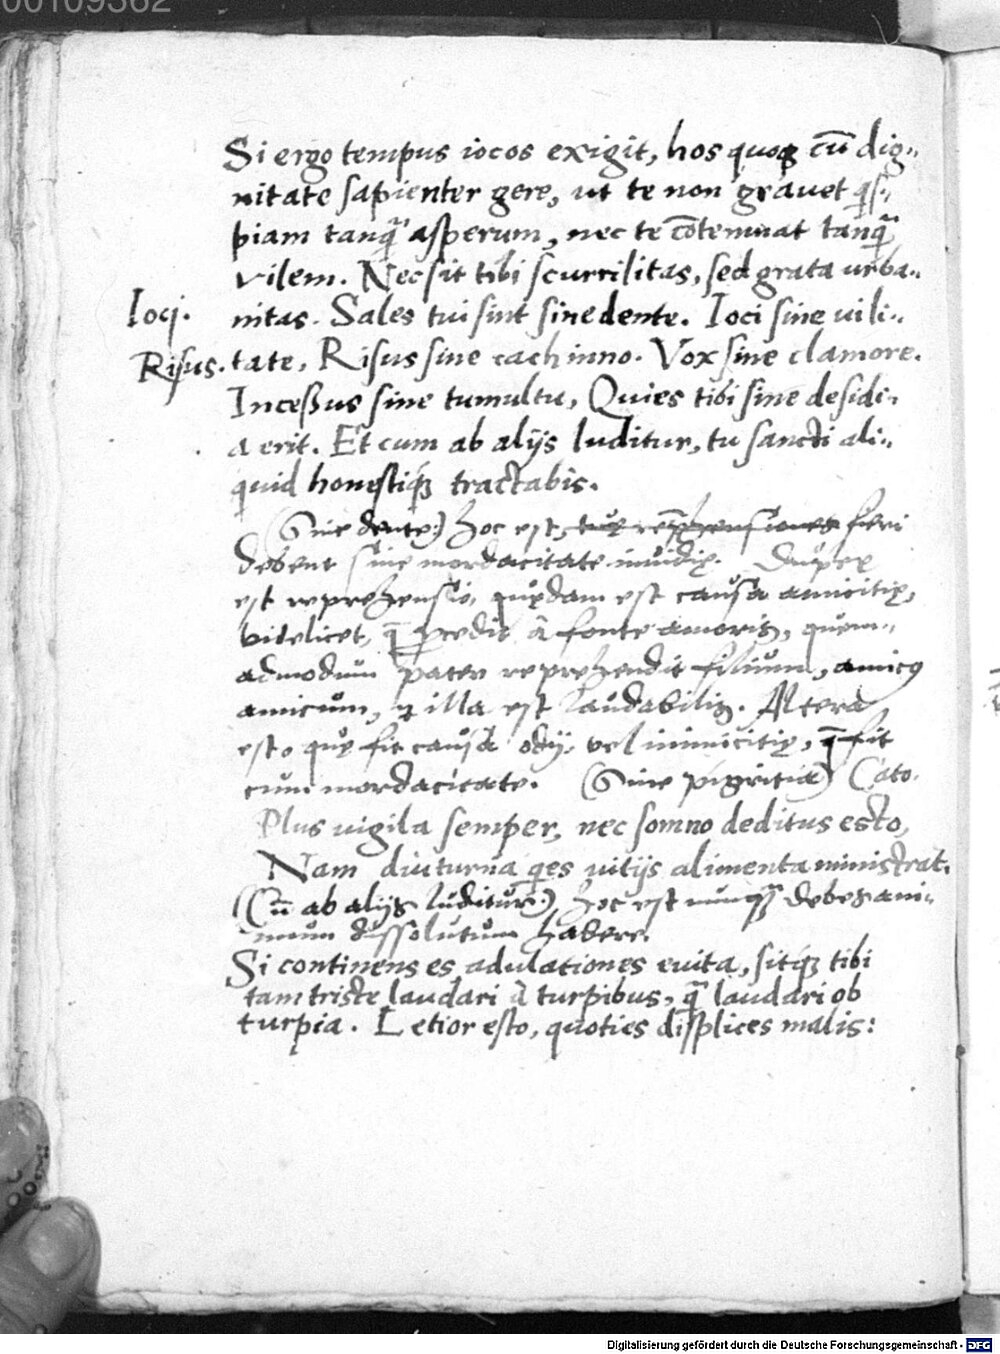 00109362
Si ergo tempus iocos exigit, hos quoqȝ cū dig„
nitate sapienter gere, ut te non grauet qs„
piam tanq̃ asperum, nec te cōtemnat tanq̃
vilem. Nec sit tibi scurrilitas, sed grata urba„
Ioci.
nitas. Sales tui sint sine dente. Ioci sine uili„
Risus.
tate, Risus sine cachinno. Vox sine clamore.
Inceßus sine tumultu, Quies tibi sine desidi„
a erit. Et cum ab alijs luditur, tu sancti ali„
quid honestiqȝ tractabis.
(Sine dente) hoc est, tuę rep̄hensiones fieri
debent sine mordacitate inuidię. Duplex
est reprehensio, quędam est causa amicitię,
videlicet, q̄ ꝓcedit à fonte amoris, quem„
admodum pater reprehendit filium, amicꝰ
amicum, et illa est laudabilis. Altera
est, quę fit causa odij, vel inimicitię, q̄ fit
cum mordacitate. (Sine pigritia) Cato.
Plus uigila semper, nec somno deditus esto,
Nam diuturna q̄es uitijs alimenta ministrat.
(Cū ab alijs luditur) hoc est nunq̃ debes ani„
mum dissolutum habere.
Si continens es, adulationes euita, sitqȝ tibi
tam triste laudari à turpibus, q̃ laudari ob
turpia. Letior esto, quoties displices malis:
Digitalisierung gefördert durch die Deutsche Forschungsgemeinschaft - DFG